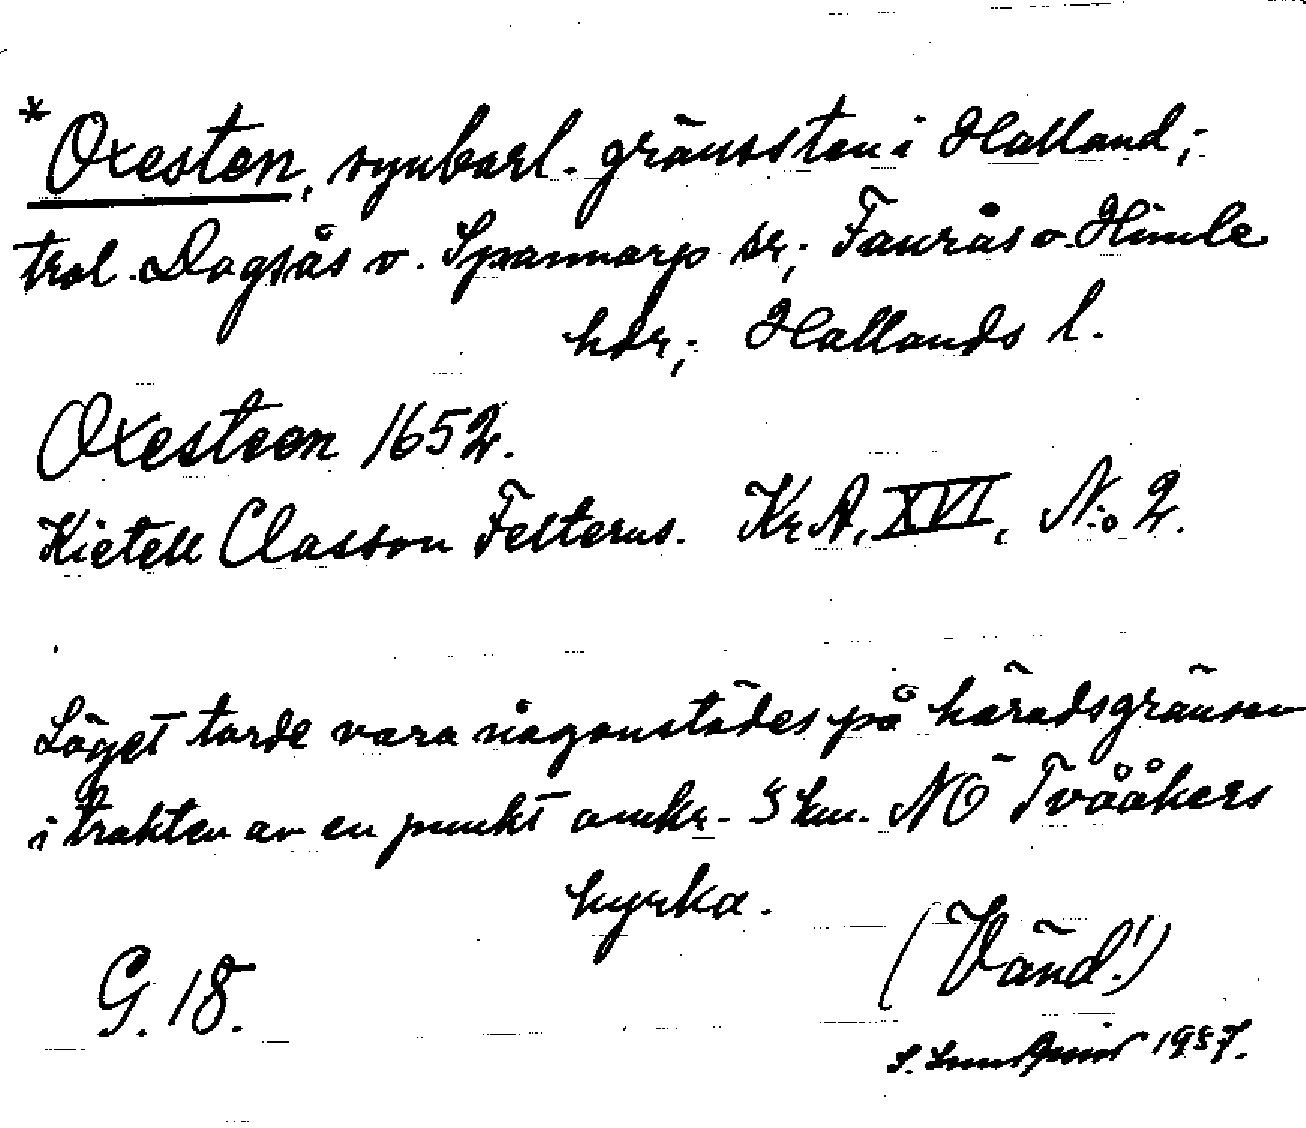 *Oxesten, synbarl. gränssten i Halland;
trol. Dagsås o. Spannarp sr; Faurås o. Himle
hdr; Hallands l.
Oxesteen 1652.
Kietell Classon Felterus. KrA, XVI, N:o 2.
Läget torde vara någonstädes på häradsgränsen
i trakten av en punkt omkr. 5 km. NÖ Tvååkers
kyrka.
(Vänd!)
G. 18.
S. 1937.